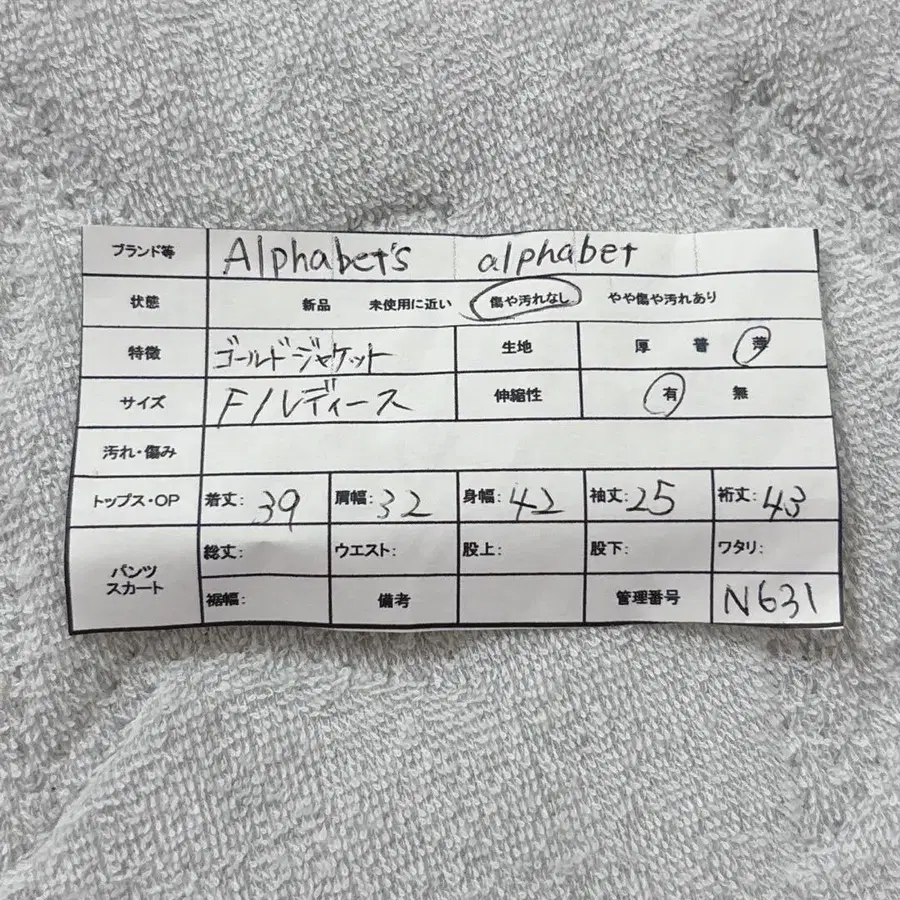 ブランド等 Alphabet's alphabet
状態 新品 未使用に近い 傷や汚れなし やや傷や汚れあり
特徴 ゴールドジャケット 生地 厚 普 薄
サイズ F/レディース 伸縮性 有 無
汚れ・傷み
トップス・OP 着丈: 39 肩幅: 32 身幅: 42 袖丈: 25 裄丈: 43
パンツ スカート 総丈: ウエスト: 股上: 股下: ワタリ:
裾幅: 備考 管理番号 N631